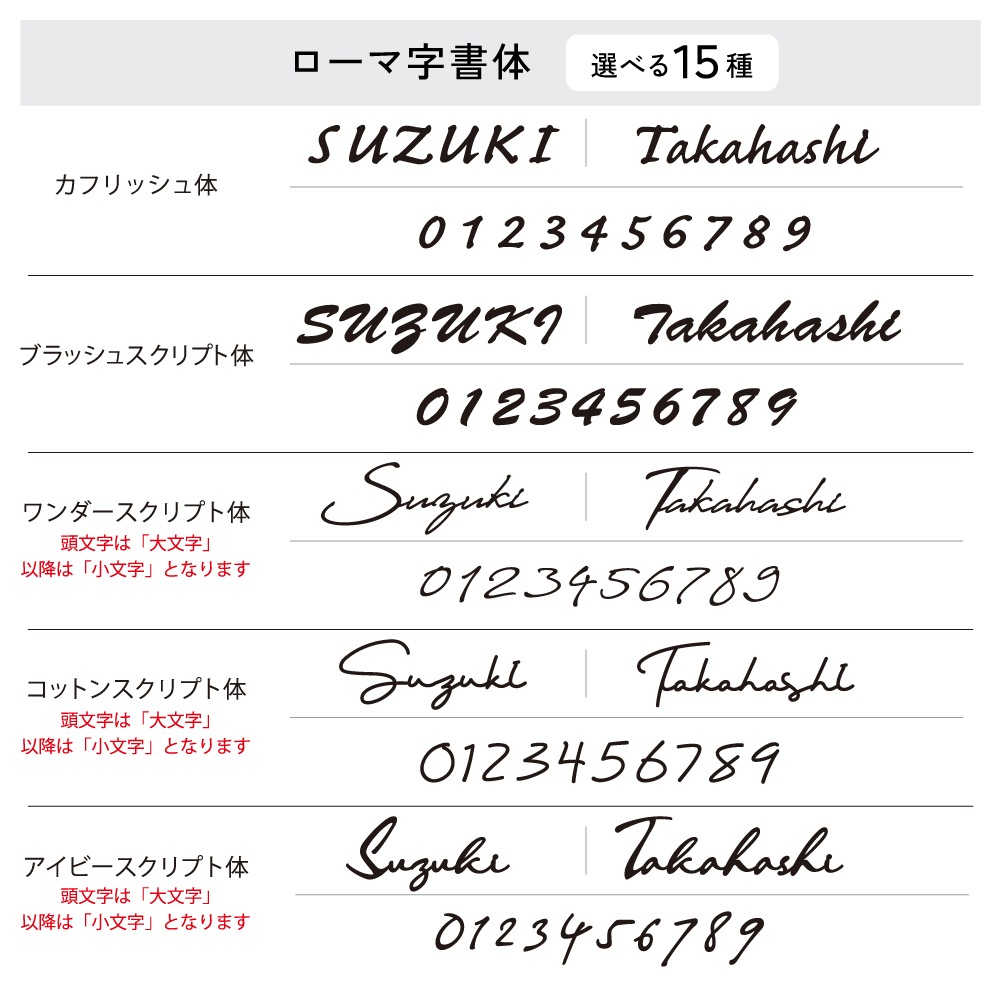 ローマ字書体 選べる15種
カフリッシュ体
SUZUKI Takahashi
0123456789
ブラッシュスクリプト体
SUZUKI Takahashi
0123456789
ワンダースクリプト体
頭文字は「大文字」
以降は「小文字」となります
Suzuki Takahashi
0123456789
コットンスクリプト体
頭文字は「大文字」
以降は「小文字」となります
Suzuki Takahashi
0123456789
アイビースクリプト体
頭文字は「大文字」
以降は「小文字」となります
Suzuki Takahashi
0123456789